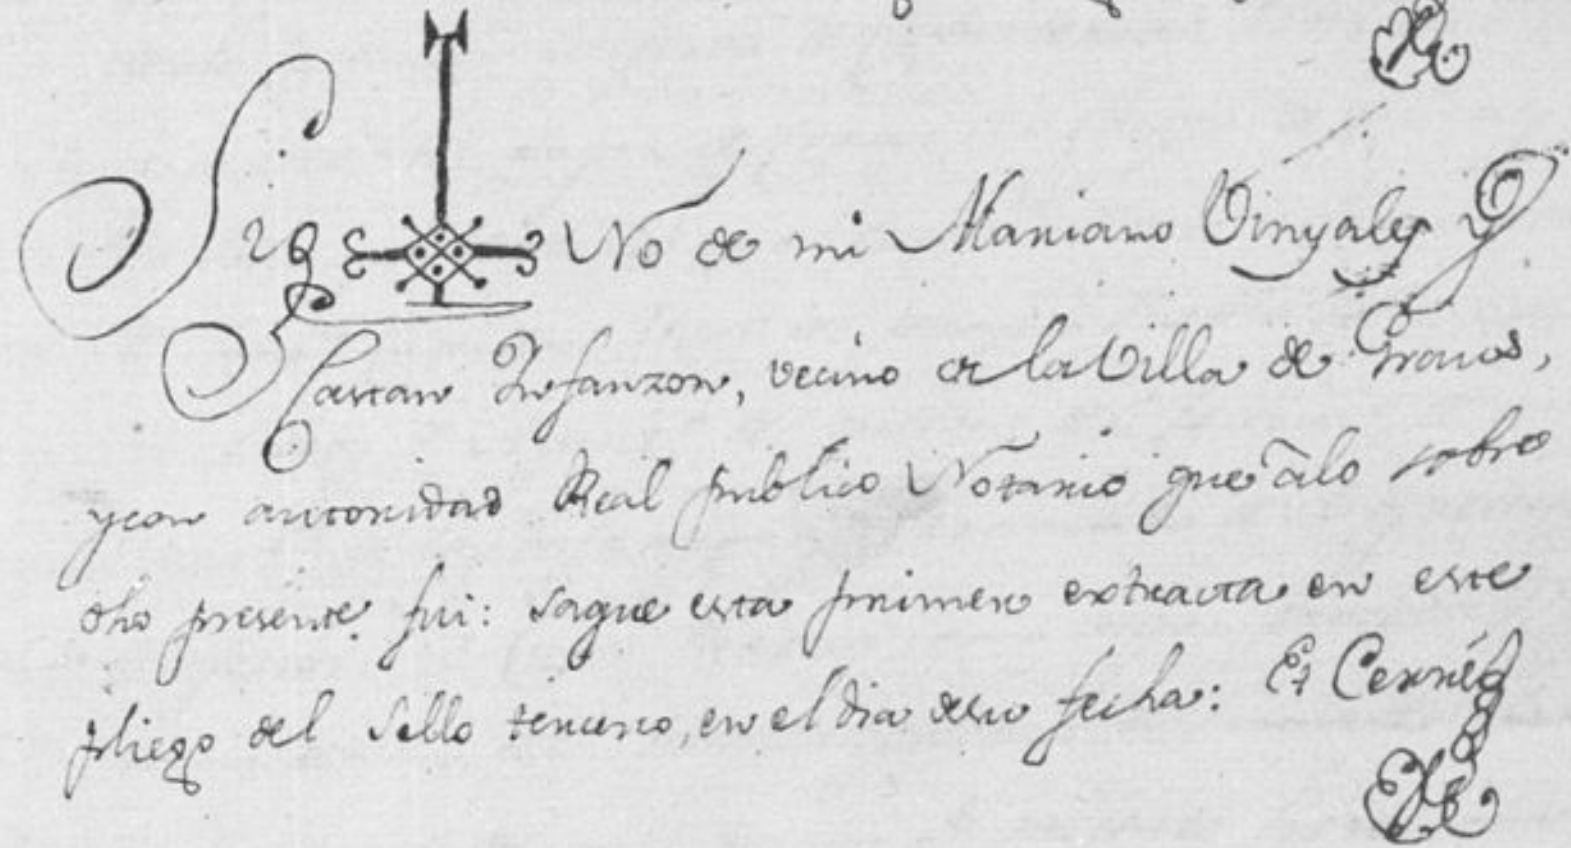 Sig No de mi Mariano Vinyales y
Cascan Infanzon, vecino de la Villa de Graus,
ycon autoridad Real publico Notario que alo sobre
dho presente fui: saque esta primera extracta en este
pliego del Sello tercero, en el dia desu fecha: Et Cerré